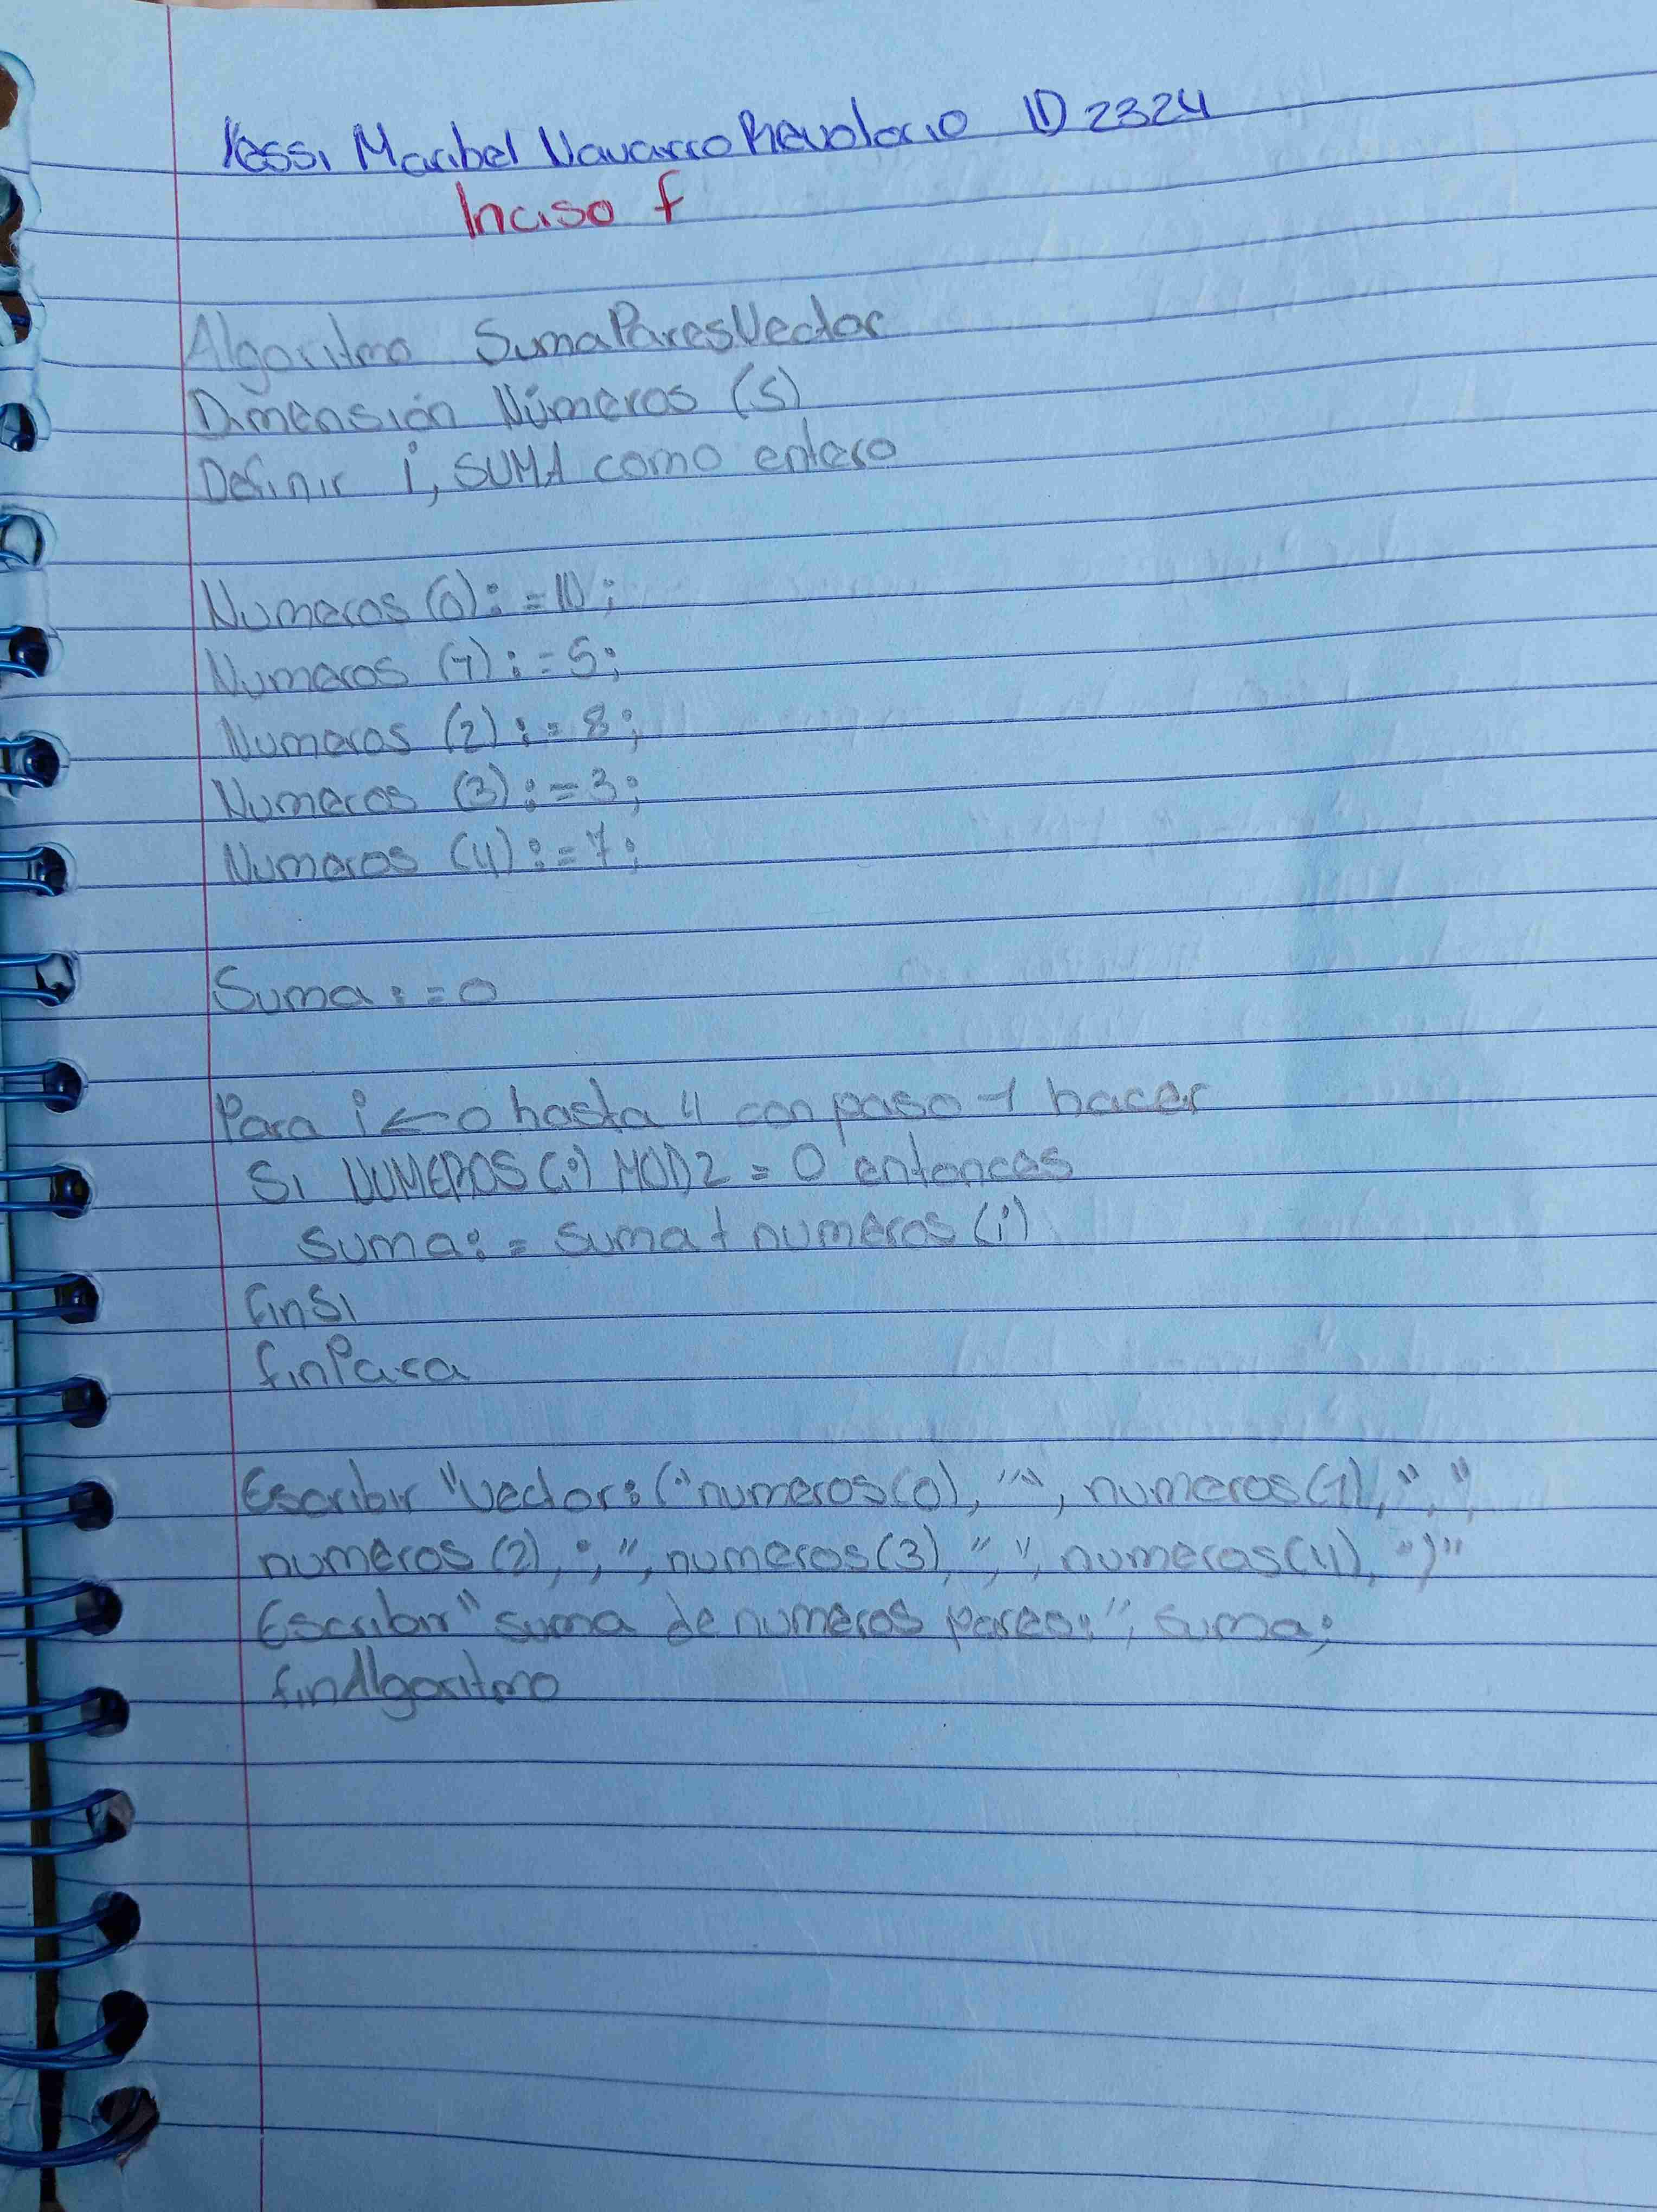 Yessi Maribel Navarro Revolorio ID 2324
Inciso f
Algoritmo SumaParesVector
Dimensión Números (5)
Definir i, SUMA como entero
Numeros (0) := 10;
Numeros (1) := 5;
Numeros (2) := 8;
Numeros (3) := 3;
Numeros (4) := 7;
Suma := 0
Para i ← 0 hasta 4 con paso 1 hacer
Si NUMEROS (i) MOD 2 = 0 entonces
suma := suma + numeros (i)
finSi
finPara
Escribir "Vector: (" numeros(0), "", numeros (1), ", "
numeros (2), ", ", numeros (3), ", ", numeros (4), ")"
Escribir "suma de numeros pares:", suma;
finAlgoritmo